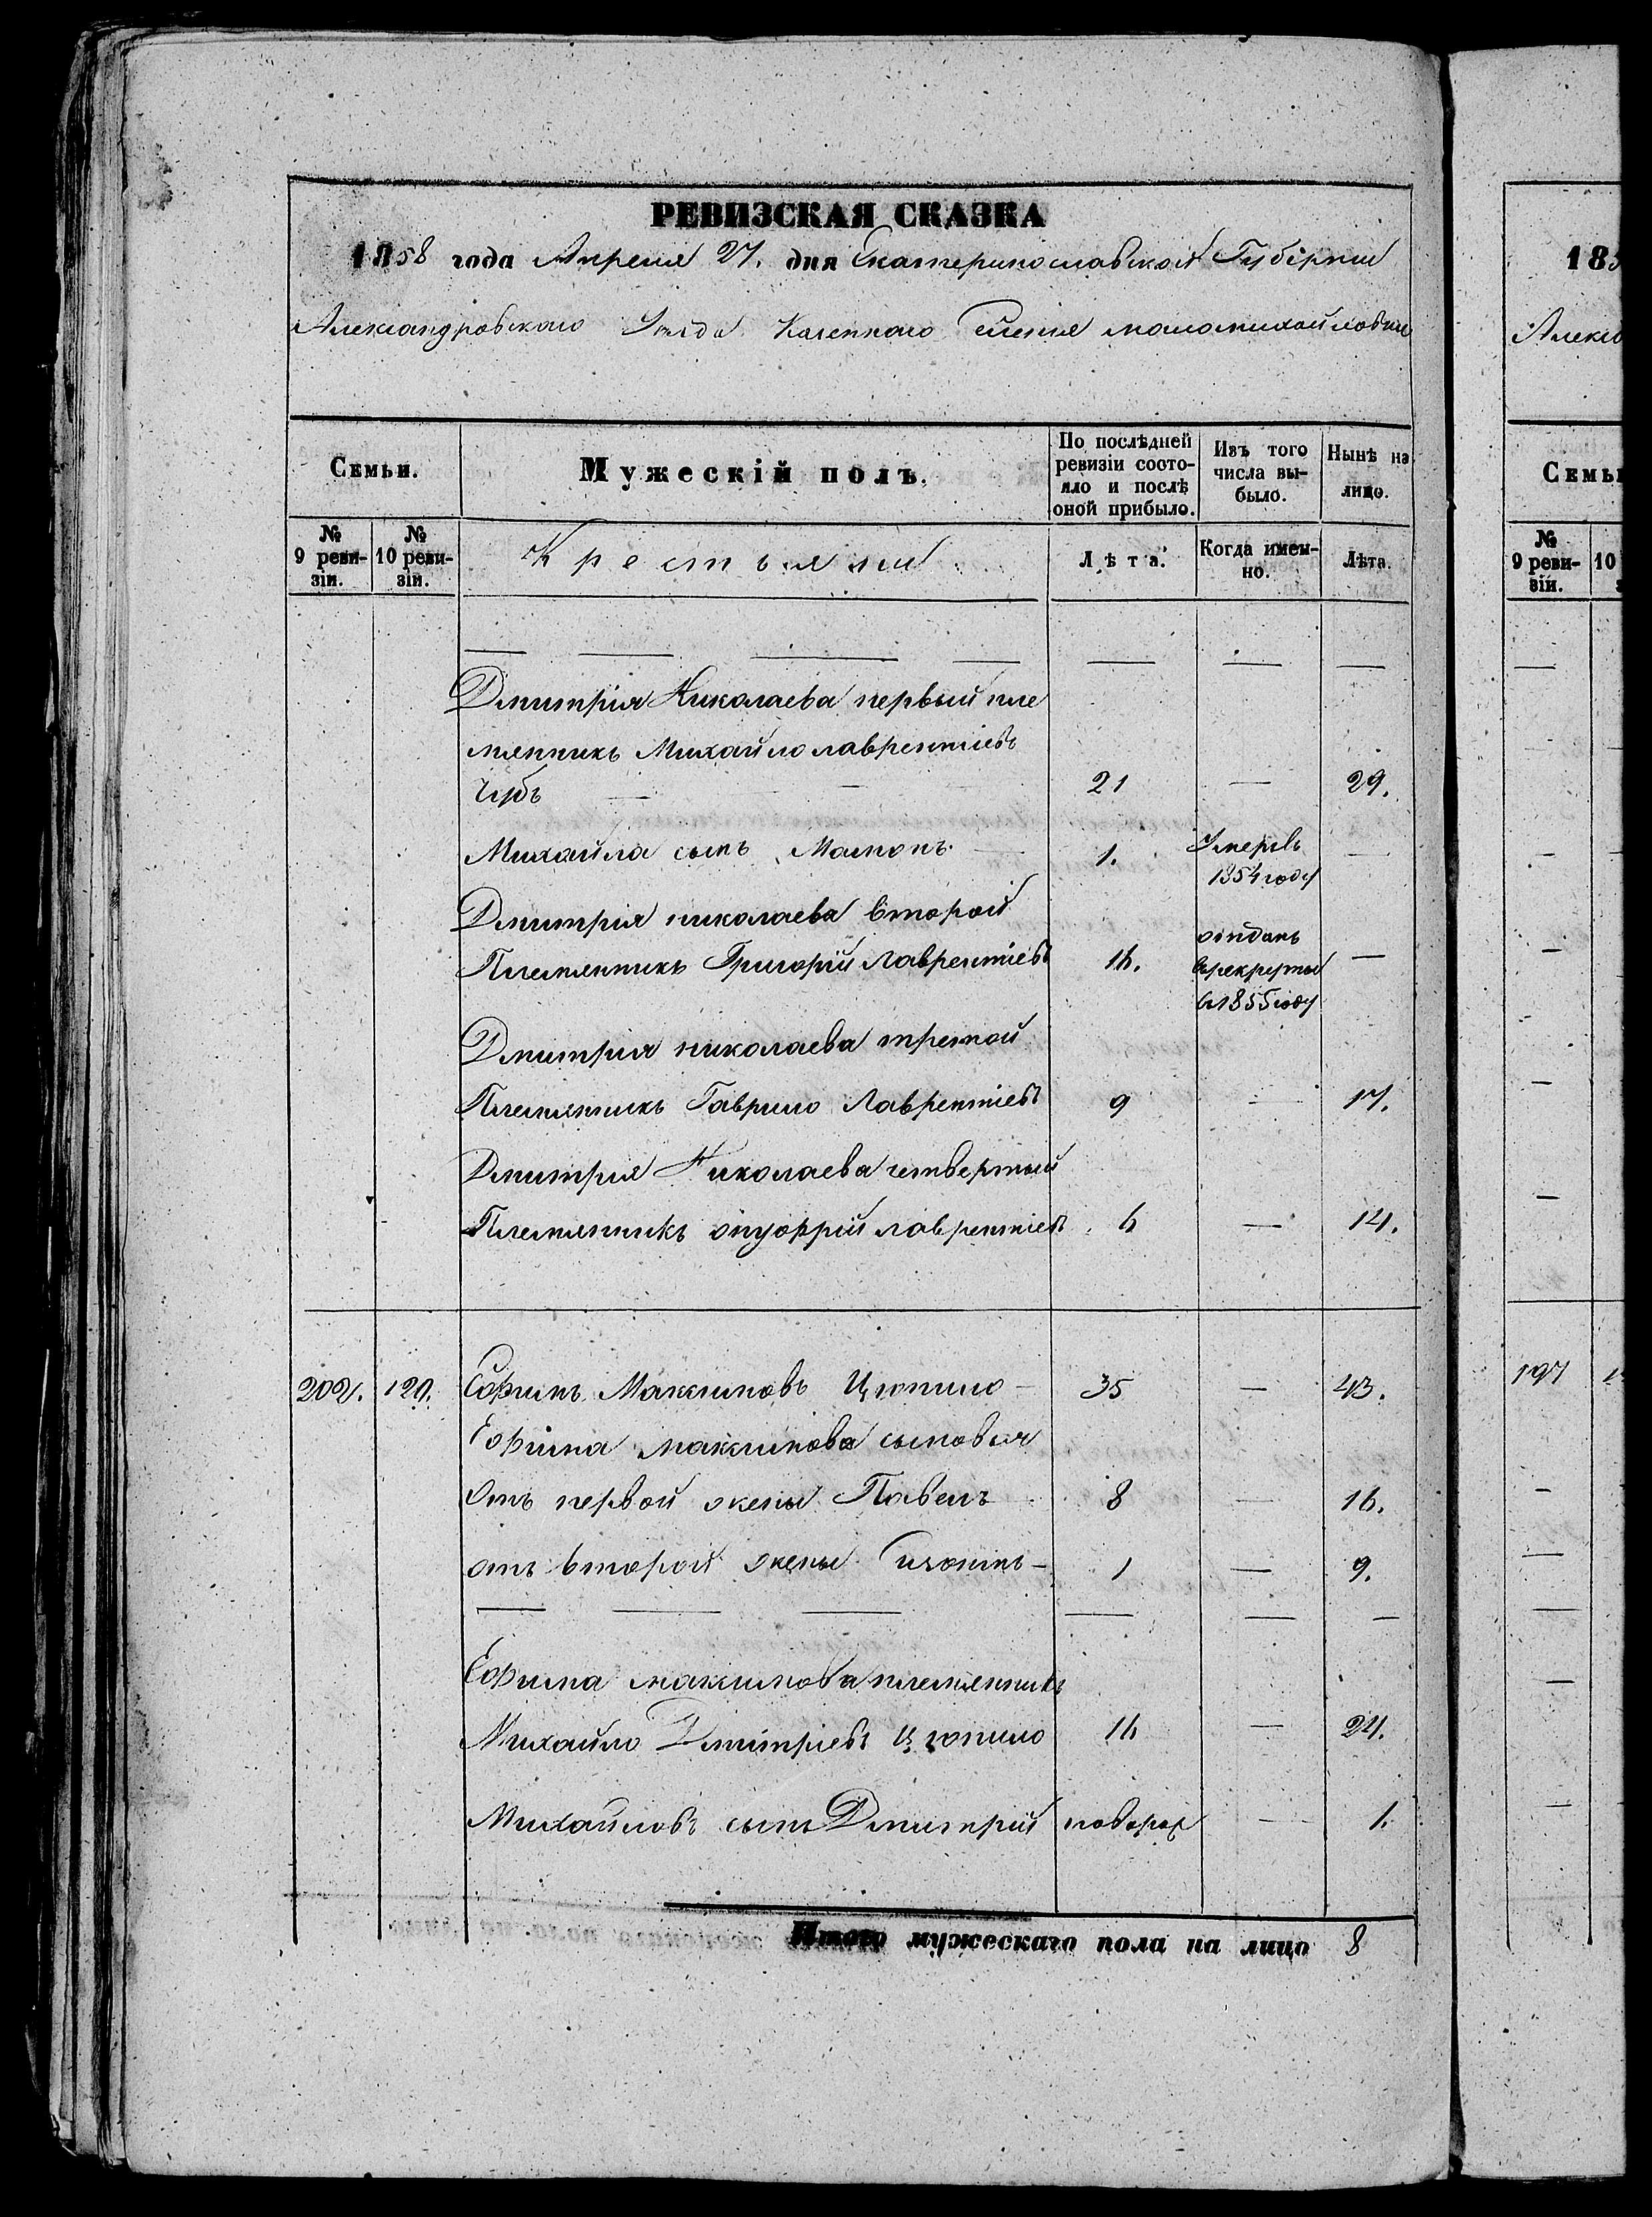 РЕВИЗСКАЯ СКАЗКА
1858 года Апреля 27. дня Екатеринославской Губерніи
Александровского Уезда Казенного Селенія маломихайловки
Семьи. Мужескій полъ. По послѣдней ревизіи состояло и послѣ оной прибыло. Изъ того числа выбыло. Нынѣ на лицо.
№ 9 ревизіи. № 10 ревизіи. Крестьяне Лѣта. Когда именно. Лѣта.
Дмитрія Николаева первый пле
мянникъ Михайло лаврентіевъ
Чубъ 21 — 29.
Михайла сынъ Мамонъ 1. Умеръ въ 1854 году —
Дмитрія николаева второй
Племянникъ Григорій Лаврентіевъ 16. отданъ врекруты в 1855 году —
Дмитрия николаева третой
Племянникъ Гаврило Лаврентіевъ 9 — 17.
Дмитрия Николаева четвертый
Племянникъ онуфрій лаврентіевъ 6 — 14.
202. 129. Ефимъ Максимовъ Цюпило — 35 — 43.
Ефима максимова сыновья
Отъ первой жены Павелъ 8 — 16.
отъ второй жены — 1 — 9.
Ефима максимова племянникъ
Михайло Дмитріевъ Цюпило 16 — 24.
Михайловъ сынъ Дмитрій новорож — 1.
Итого мужескаго пола на лицо 8
185
Алекса
Семьи
№ 9 ревизіи. 10
197